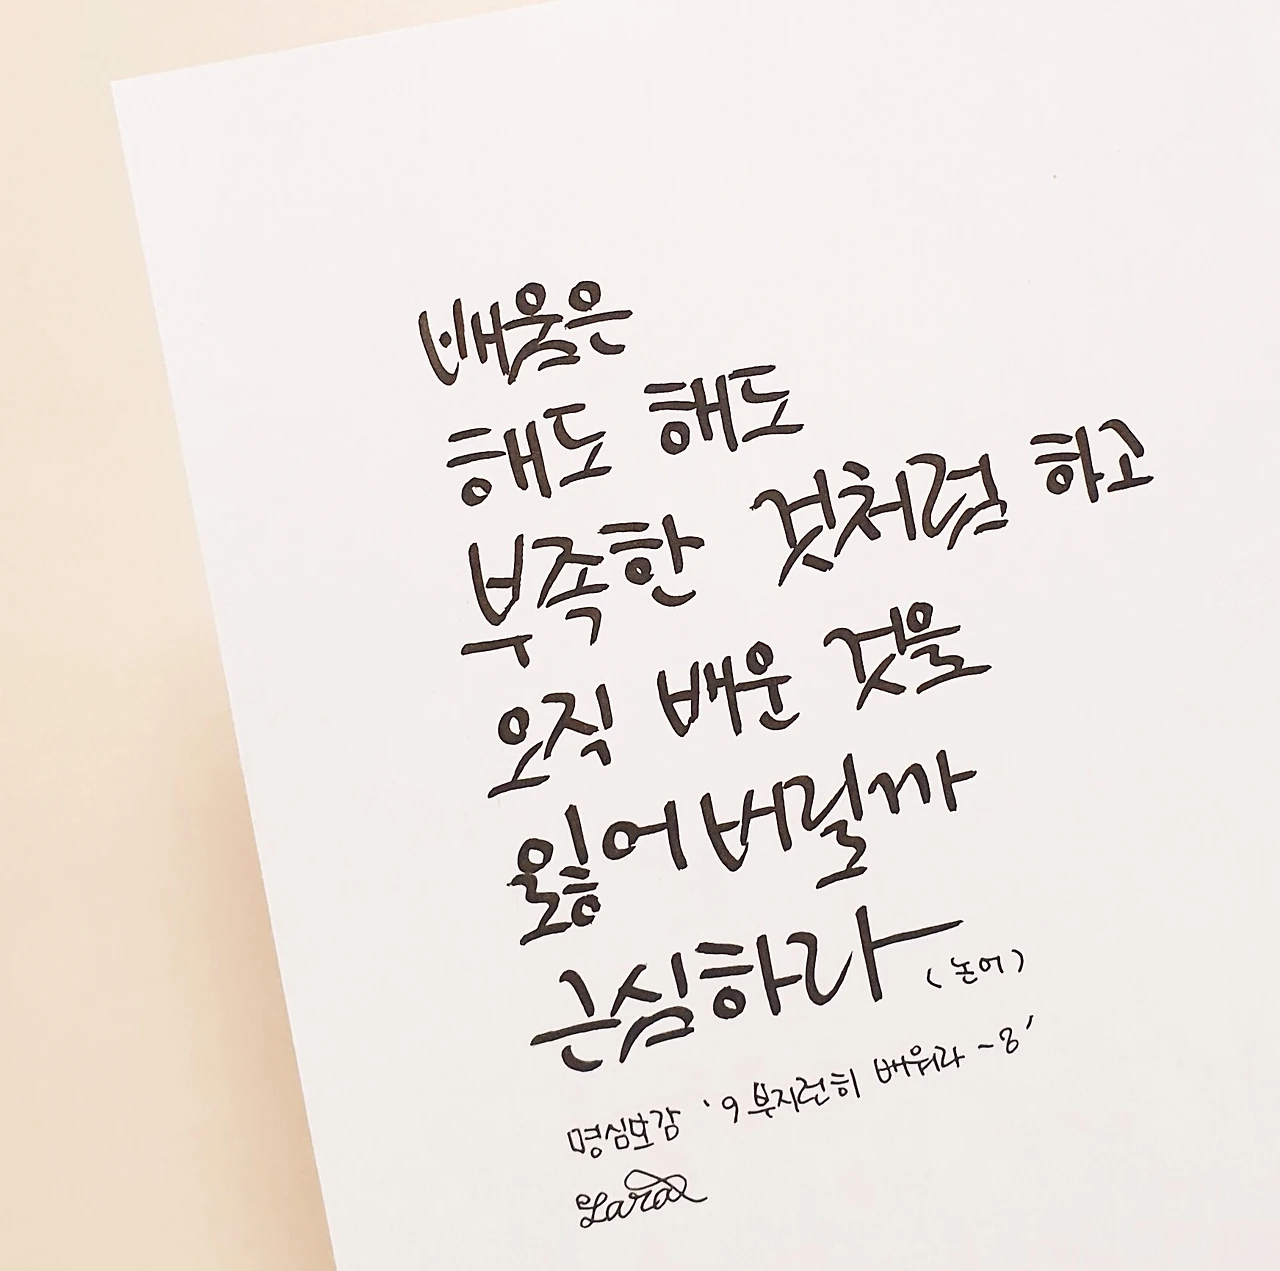 배움은
해도 해도
부족한 것처럼 하고
오직 배운 것을
잃어버릴까
근심하라
(논어)
명심보감 '9 부지런히 배워라 -8'
Lara